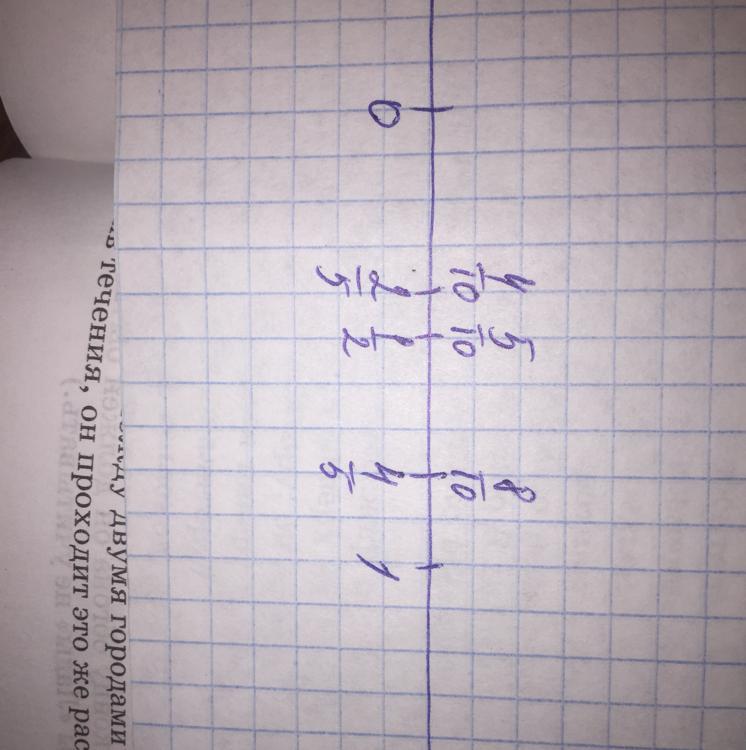 4/10 5/10 8/10
0 2/5 1/2 4/5 1
двумя городами
течения, он проходит это же рас